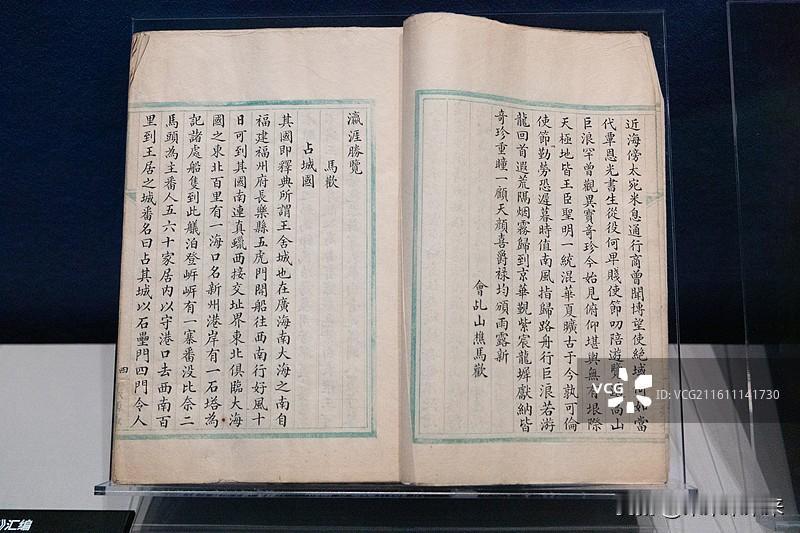 近海傍太宛米息通行商曾聞博望使絕域何如當
代覃恩光書生從役何卑賤使節叨陪遊覽高山
巨浪罕曾觀異寶奇珍今始見俯仰堪輿無有垠際
天極地皆王臣聖明一統混華夏曠古于今孰可倫
使節勤勞恐遲暮時值南風指歸路舟行巨浪若游
龍回首遐荒隔烟霧歸到京華覲紫宸龍墀獻納皆
奇珍重瞳一顧天顏喜爵祿均頒雨露新
會乩山樵馬歡
瀛涯勝覽
馬歡
占城國
其國即釋典所謂王舍城也在廣海南大海之南自
福建福州府長樂縣五虎門開船往西南行好風十
日可到其國南連真蠟西接交址界東北俱臨大海
國之東北百里有一海口名新州港岸有一石塔為
記諸處船隻到此艤泊登岍岍有一寨番没比奈二
馬頭為主番人五六十家居內以守港口去西南百
里到王居之城番名曰占其城以石壘門四門令人
四
VCG
ID:VCG211611141730
》汇编